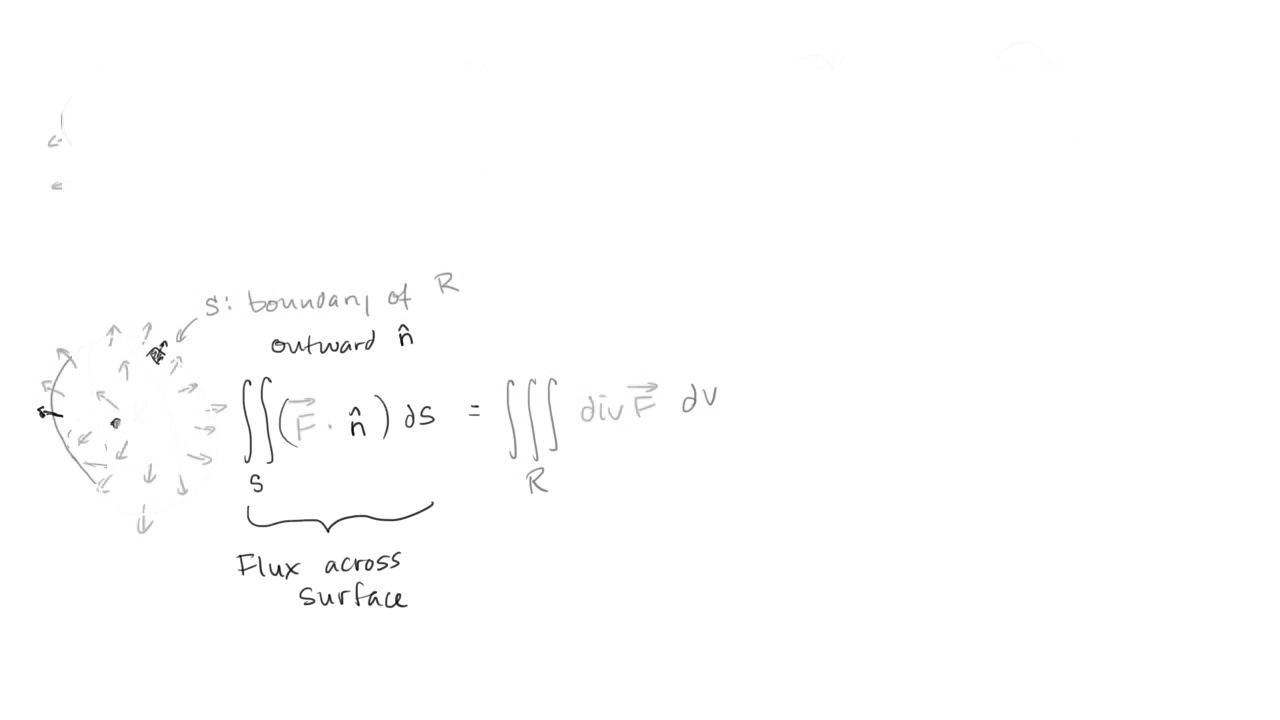 S: boundary of R
outward n̂
∬(F⃗ · n̂) ds = ∭ div F⃗ dv
S R
Flux across
surface